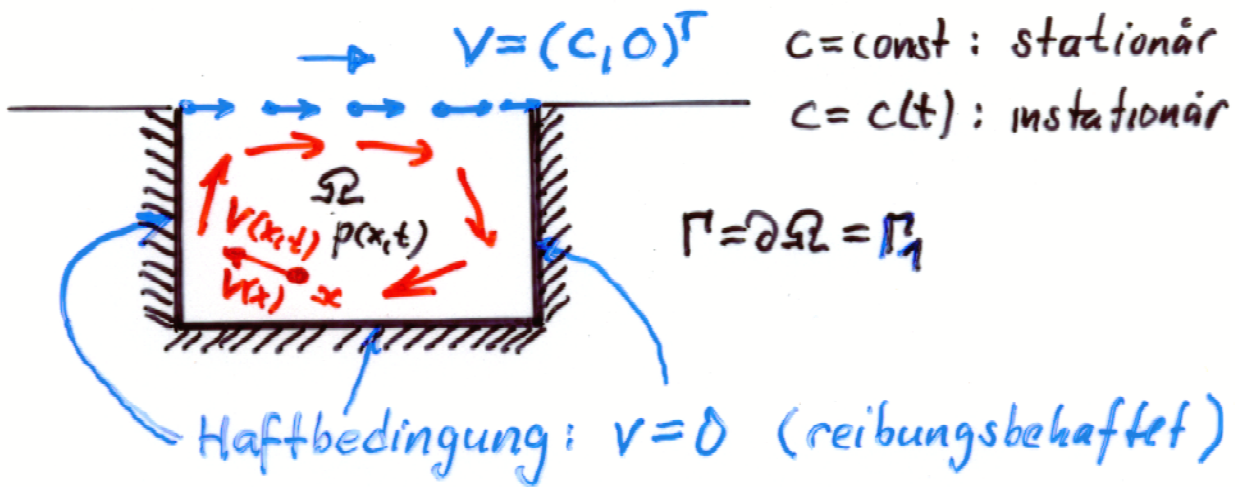 V=(C,0)ᵀ
c=const: stationär
c=c(t): instationär
Ω
V(x,t) p(x,t)
V(x) x
Γ=∂Ω=Γ₁
Haftbedingung: v=0 (reibungsbehaftet)